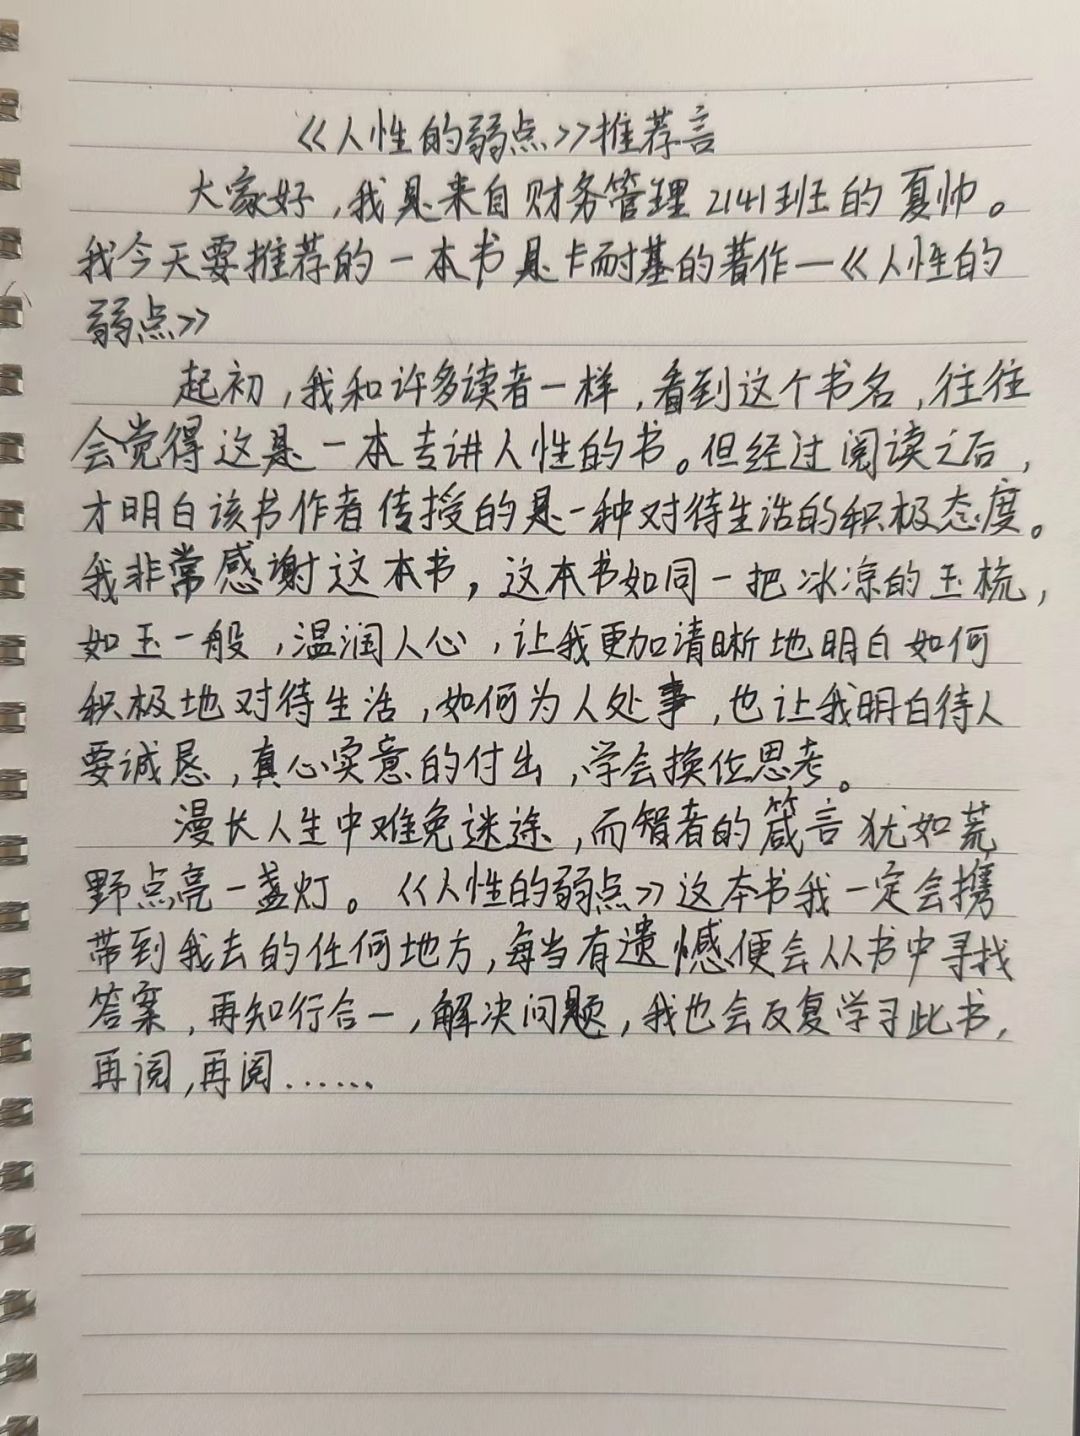 《人性的弱点》推荐言
大家好,我是来自财务管理2141班的夏帅。
我今天要推荐的一本书是卡耐基的著作—《人性的
弱点》
起初,我和许多读者一样,看到这个书名,往往
会觉得这是一本专讲人性的书。但经过阅读之后,
才明白该书作者传授的是一种对待生活的积极态度。
我非常感谢这本书,这本书如同一把冰凉的玉梳,
如玉一般,温润人心,让我更加清晰地明白如何
积极地对待生活,如何为人处事,也让我明白待人
要诚恳,真心实意的付出,学会换位思考。
漫长人生中难免迷途,而智者的箴言犹如荒
野点亮一盏灯。《人性的弱点》这本书我一定会携
带到我去的任何地方,每当有遗憾便会从书中寻找
答案,再知行合一,解决问题,我也会反复学习此书,
再阅,再阅……